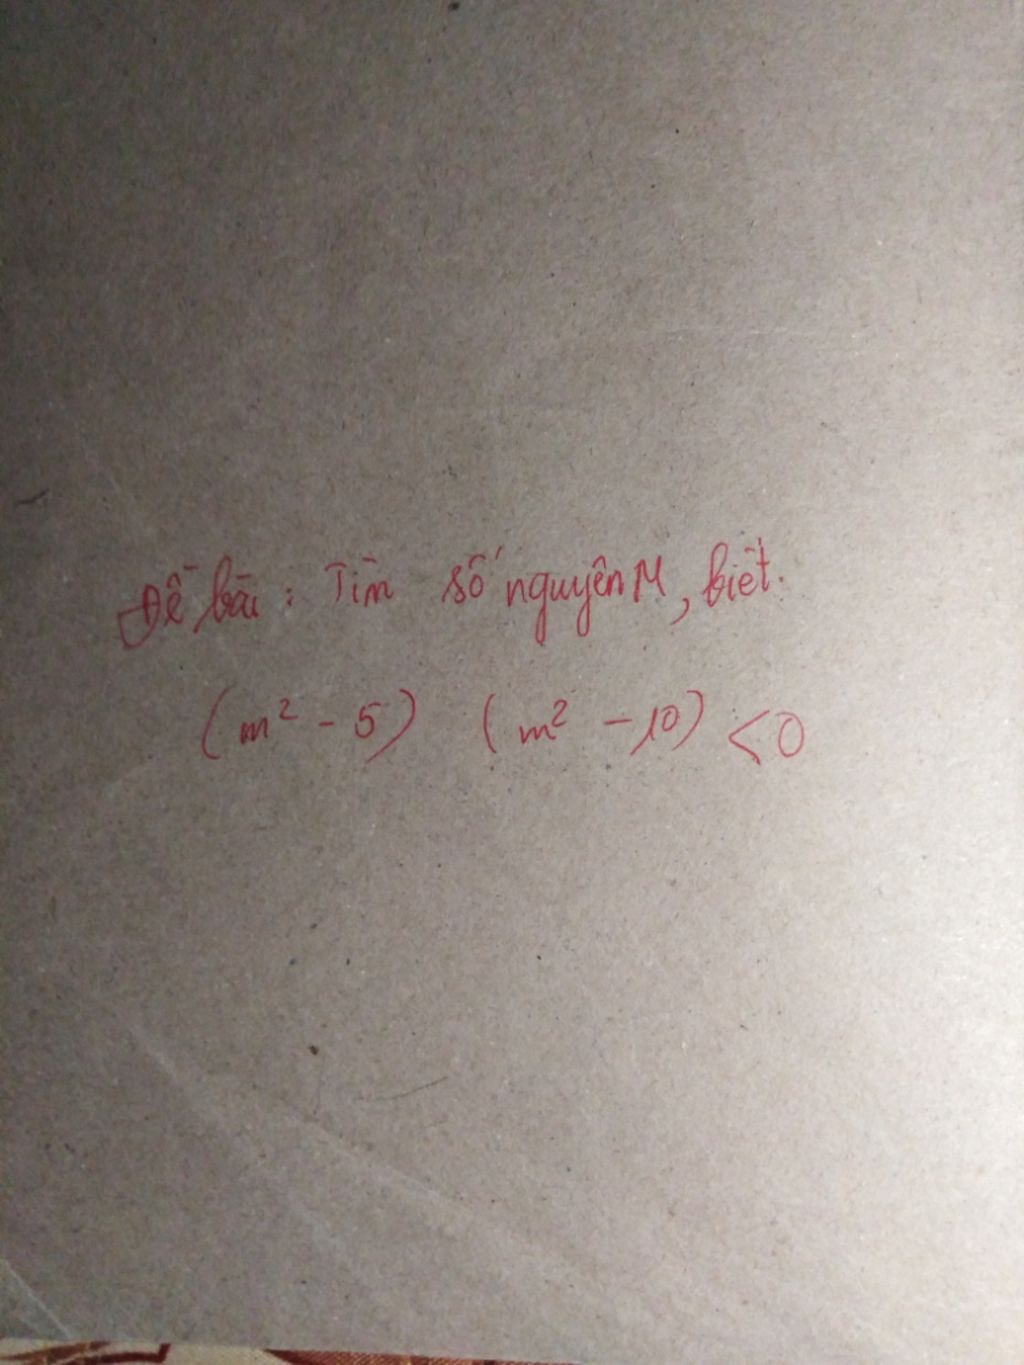 Đề bài: Tìm số nguyên M, biết.
(m² - 5) (m² - 10) < 0